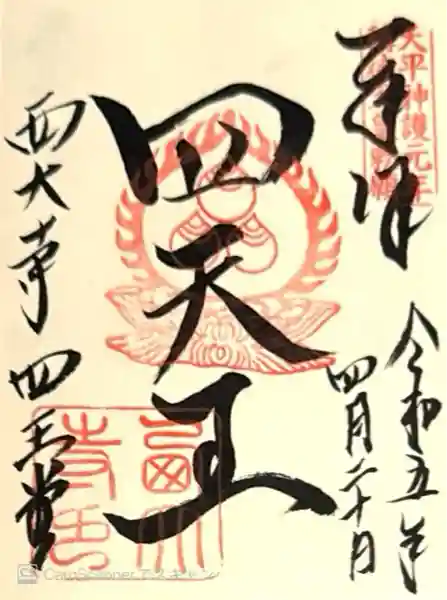 奉拝
天平神護元年
令和五年
四月二十日
四天王
西大寺 四王堂
CamScannerでスキャン